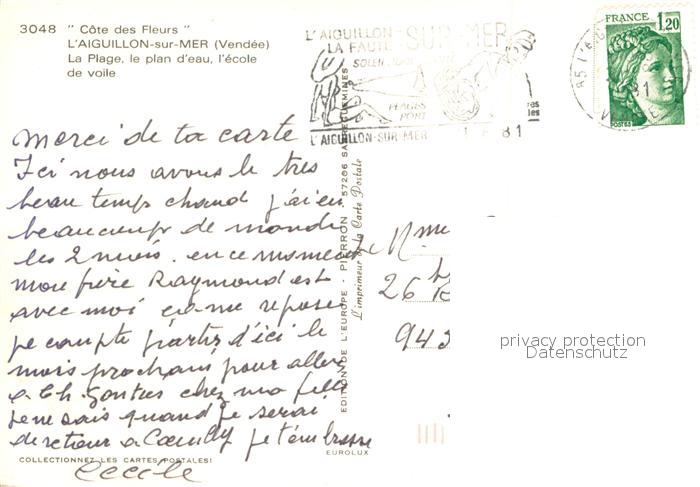 3048 " Côte des Fleurs "
L'AIGUILLON-sur-MER (Vendée)
La Plage, le plan d'eau, l'école
de voile
L'AIGUILLON
LA FAUTE SUR-MER
SOLEIL
PLAGES
PORT
L'AIGUILLON-SUR-MER
81
FRANCE 1,20
POSTES
Merci de ta carte
Ici nous avons le très
beau temps chaud j'ai eu
beaucoup de monde
les 2 mois. en ce moment
mon frère Raymond est
avec moi ça me repose
je compte partir d'ici le
mois prochain pour aller
a Ch. Gontier chez ma fille
je ne sais quand je serai
de retour a Coeuilly je t'embrasse
Cecile
Mme
26
943
EDITION DE L'EUROPE - PIERRON - 57206 SARREGUEMINES
L'imprimeur de la Carte Postale
privacy protection
Datenschutz
COLLECTIONNEZ LES CARTES POSTALES!
EUROLUX